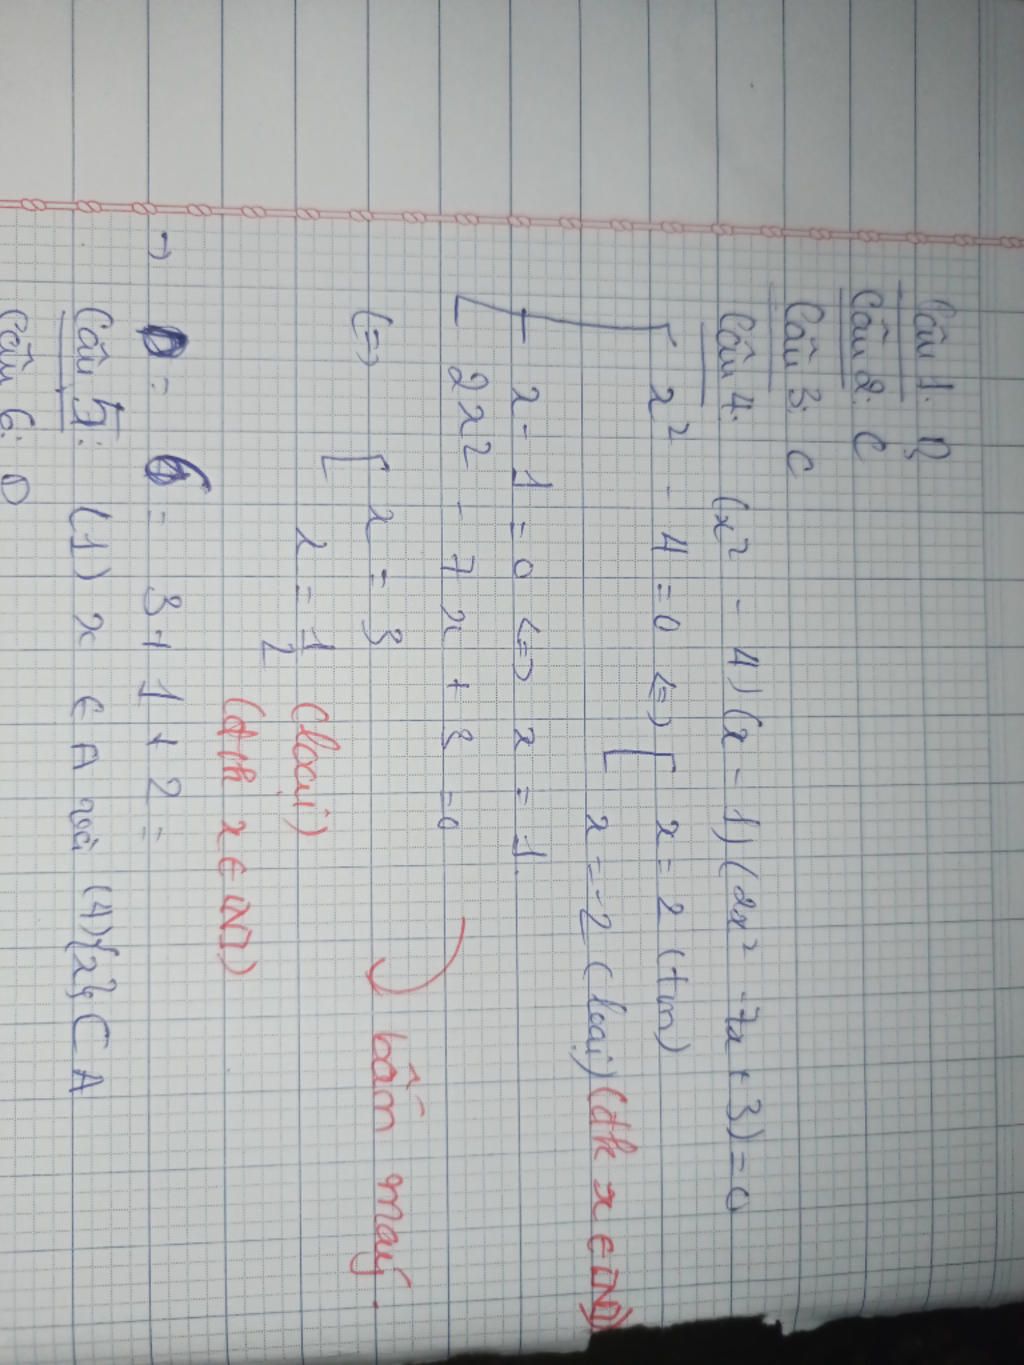 Câu 1. D
Câu 2. C
Câu 3. C
Câu 4. (x² - 4)(x - 1)(2x² - 7x + 3) = 0
[ x² - 4 = 0 <=> [ x = 2 (tm)
x = -2 (loại) (đk x ∈ N)
x - 1 = 0 <=> x = 1.
2x² - 7x + 3 = 0
(=> [ x = 3 bấm máy.
x = 1/2 (loại)
(đk x ∈ N)
= 6 = 3 + 1 + 2 =
Câu 5: (1) x ∈ A và (4) {x} ⊂ A
Câu 6: D